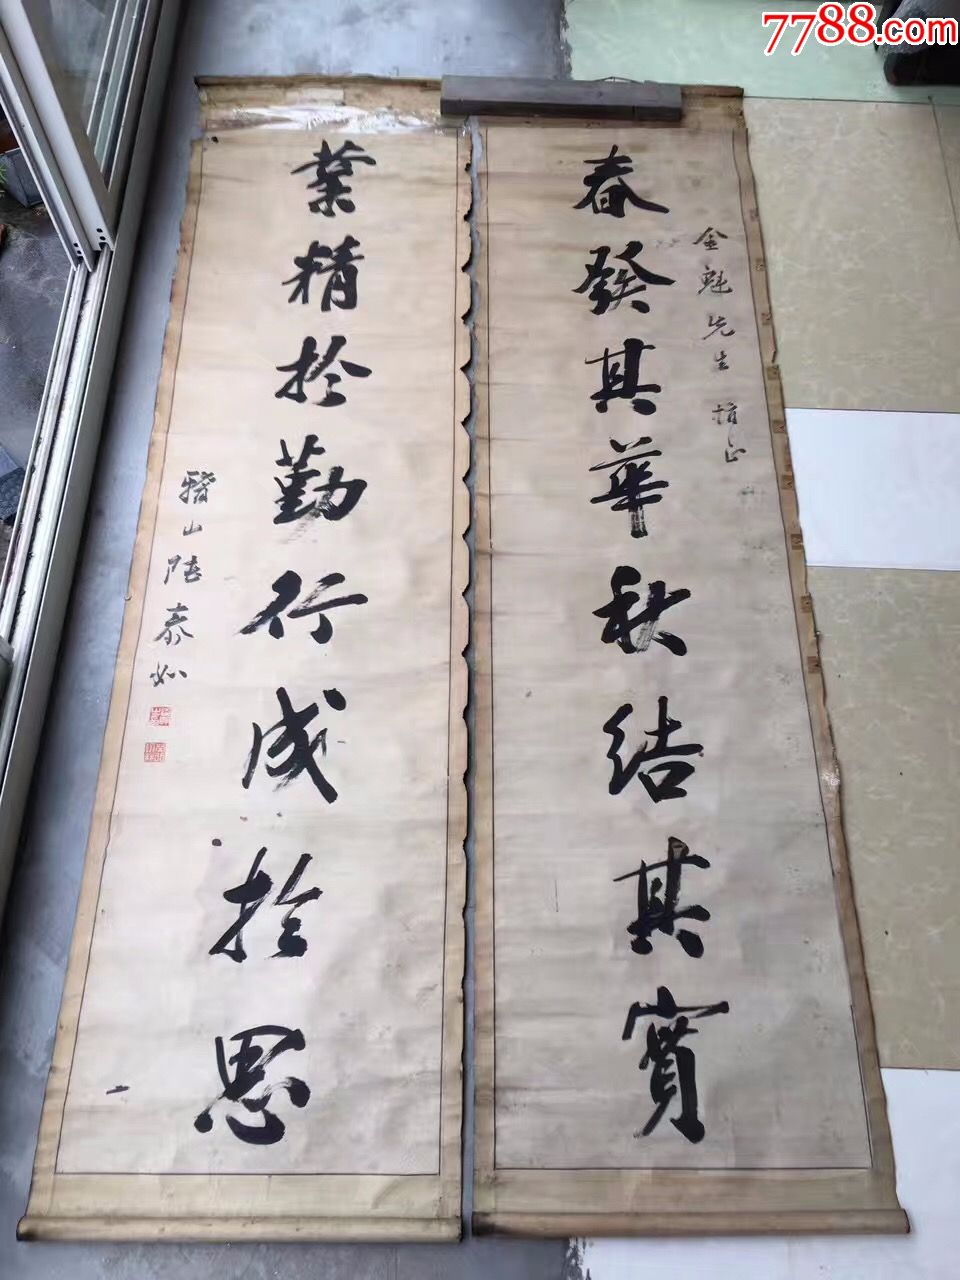 7788.com
金魁先生指正
春發其華秋結其實
業精於勤行成於思
稽山陸泰如